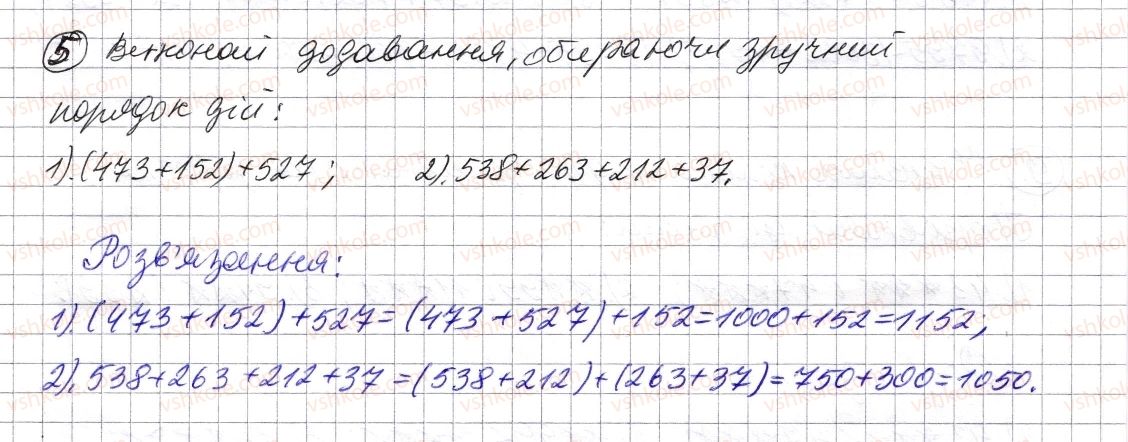 5 Виконай додавання, обираючи зручний
порядок дій:
1).(473+152)+527; 2).538+263+212+37.
Розв'язання:
1).(473+152)+527=(473+527)+152=1000+152=1152;
2).538+263+212+37=(538+212)+(263+37)=750+300=1050.